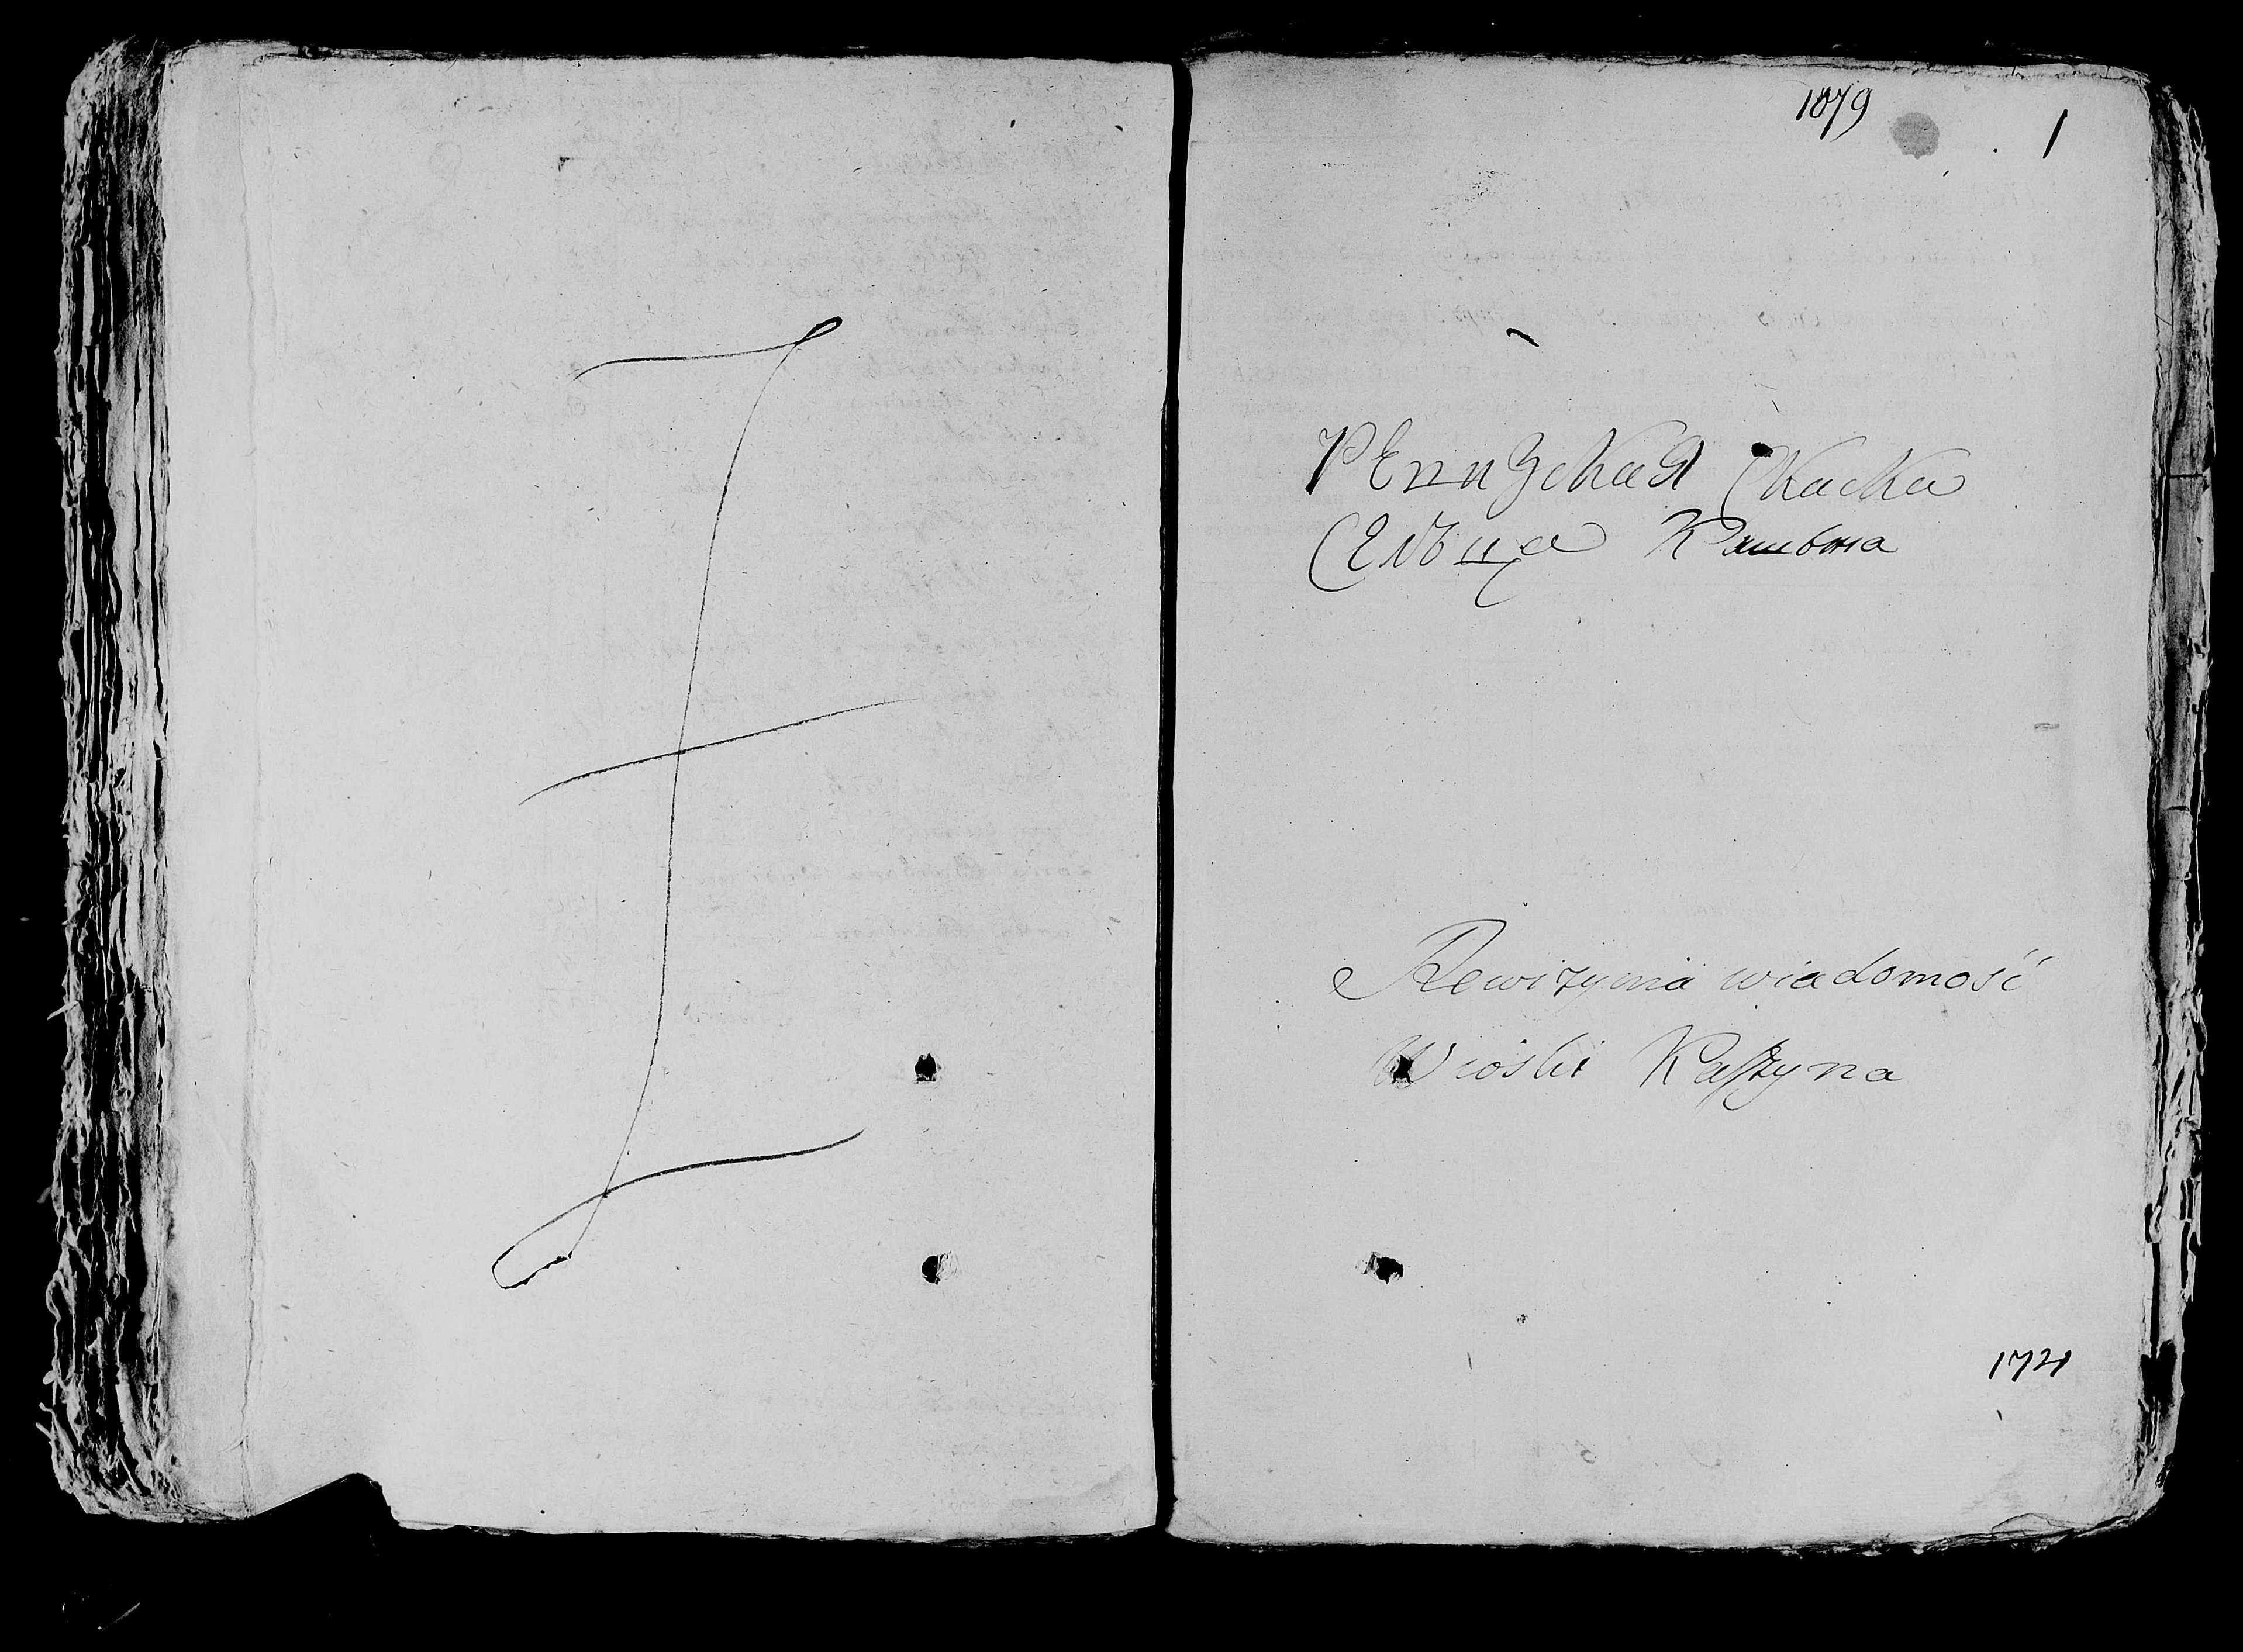 1079
1
Ревизская Скаска
Сельца Кашына
Rewizyina wiadomość
Wioski Kaszyna
1721